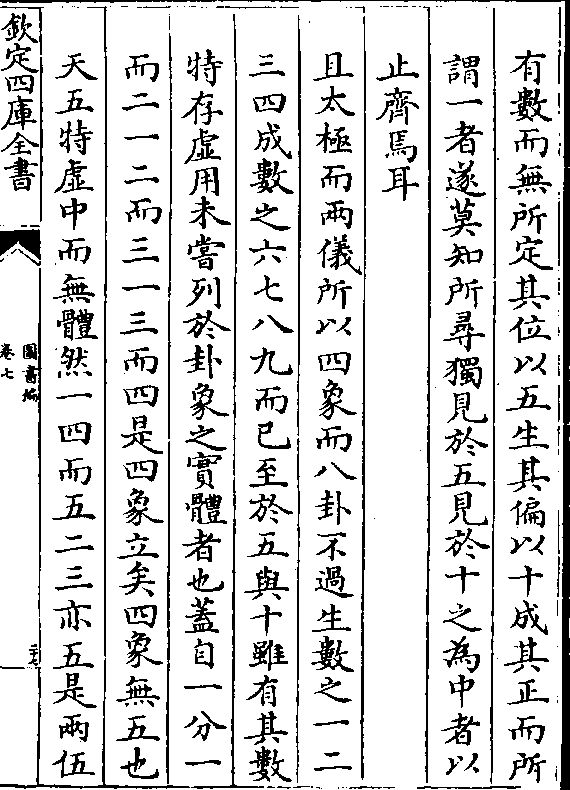 有數而無所定其位以五生其偏以十成其正而所
謂一者遂莫知所尋獨見於五見於十之為中者以
止齊焉耳
且太極而兩儀所以四象而八卦不過生數之一二
三四成數之六七八九而已至於五與十雖有其數
特存虛用未嘗列於卦象之實體者也蓋自一分一
而二一二而三一三而四是四象立矣四象無五也
天五特虛中而無體然一四而五二三亦五是兩伍
欽定四庫全書
圖書編
卷七